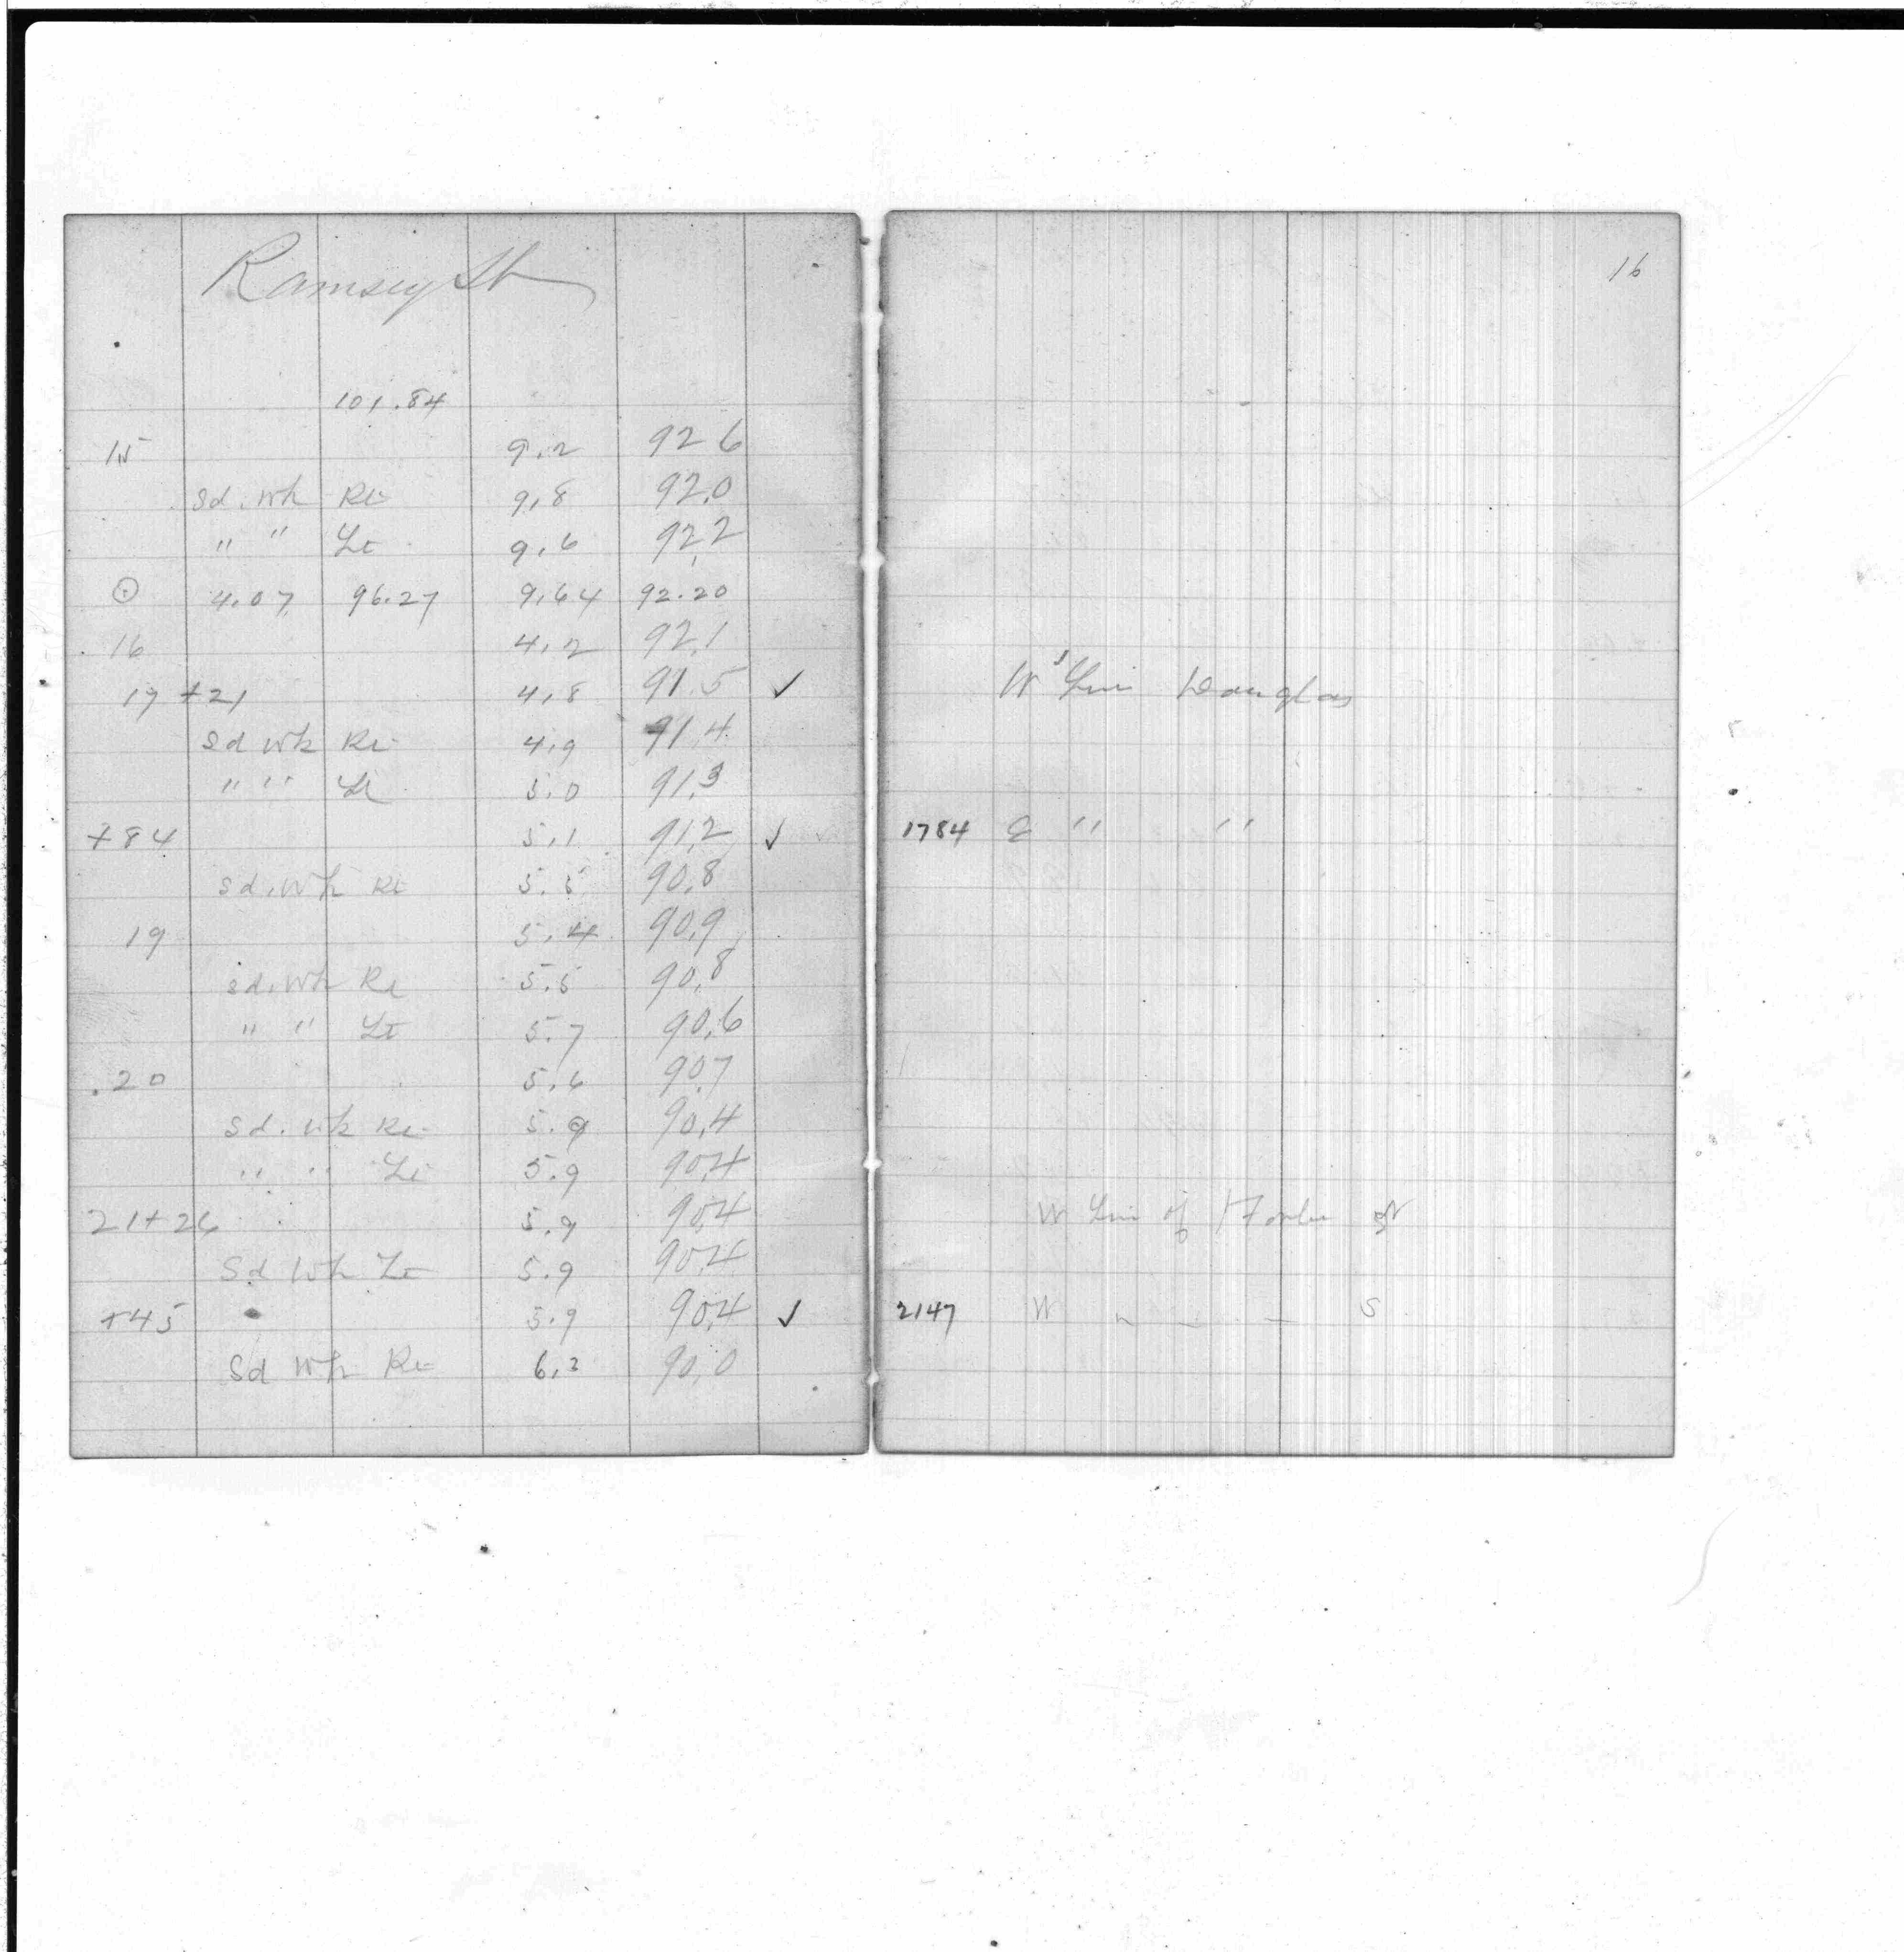 Ramsey St
16
101.84
15 9.2 92.6
Sd. Wk Rt 9.8 92.0
" " Lt 9.6 92.2
⊙ 4.07 96.27 9.64 92.20
16 4.2 92.1
17 +21 4.8 91.5 ✓ W Line Douglas
Sd Wk Rt 4.9 91.4
" " Lt 5.0 91.3
+84 5.1 91.2 ✓ 1784 E " "
Sd. Wk Rt 5.5 90.8
19 5.4 90.9
Sd. Wk Rt 5.5 90.8
" " Lt 5.7 90.6
20 5.6 90.7
Sd. Wk Rt 5.9 90.4
" " Lt 5.9 90.4
21+26 5.9 90.4 W Line of St
Sd Wk Lt 5.9 90.4
+45 5.9 90.4 ✓ 2147 W S
Sd Wk Rt 6.3 90.0